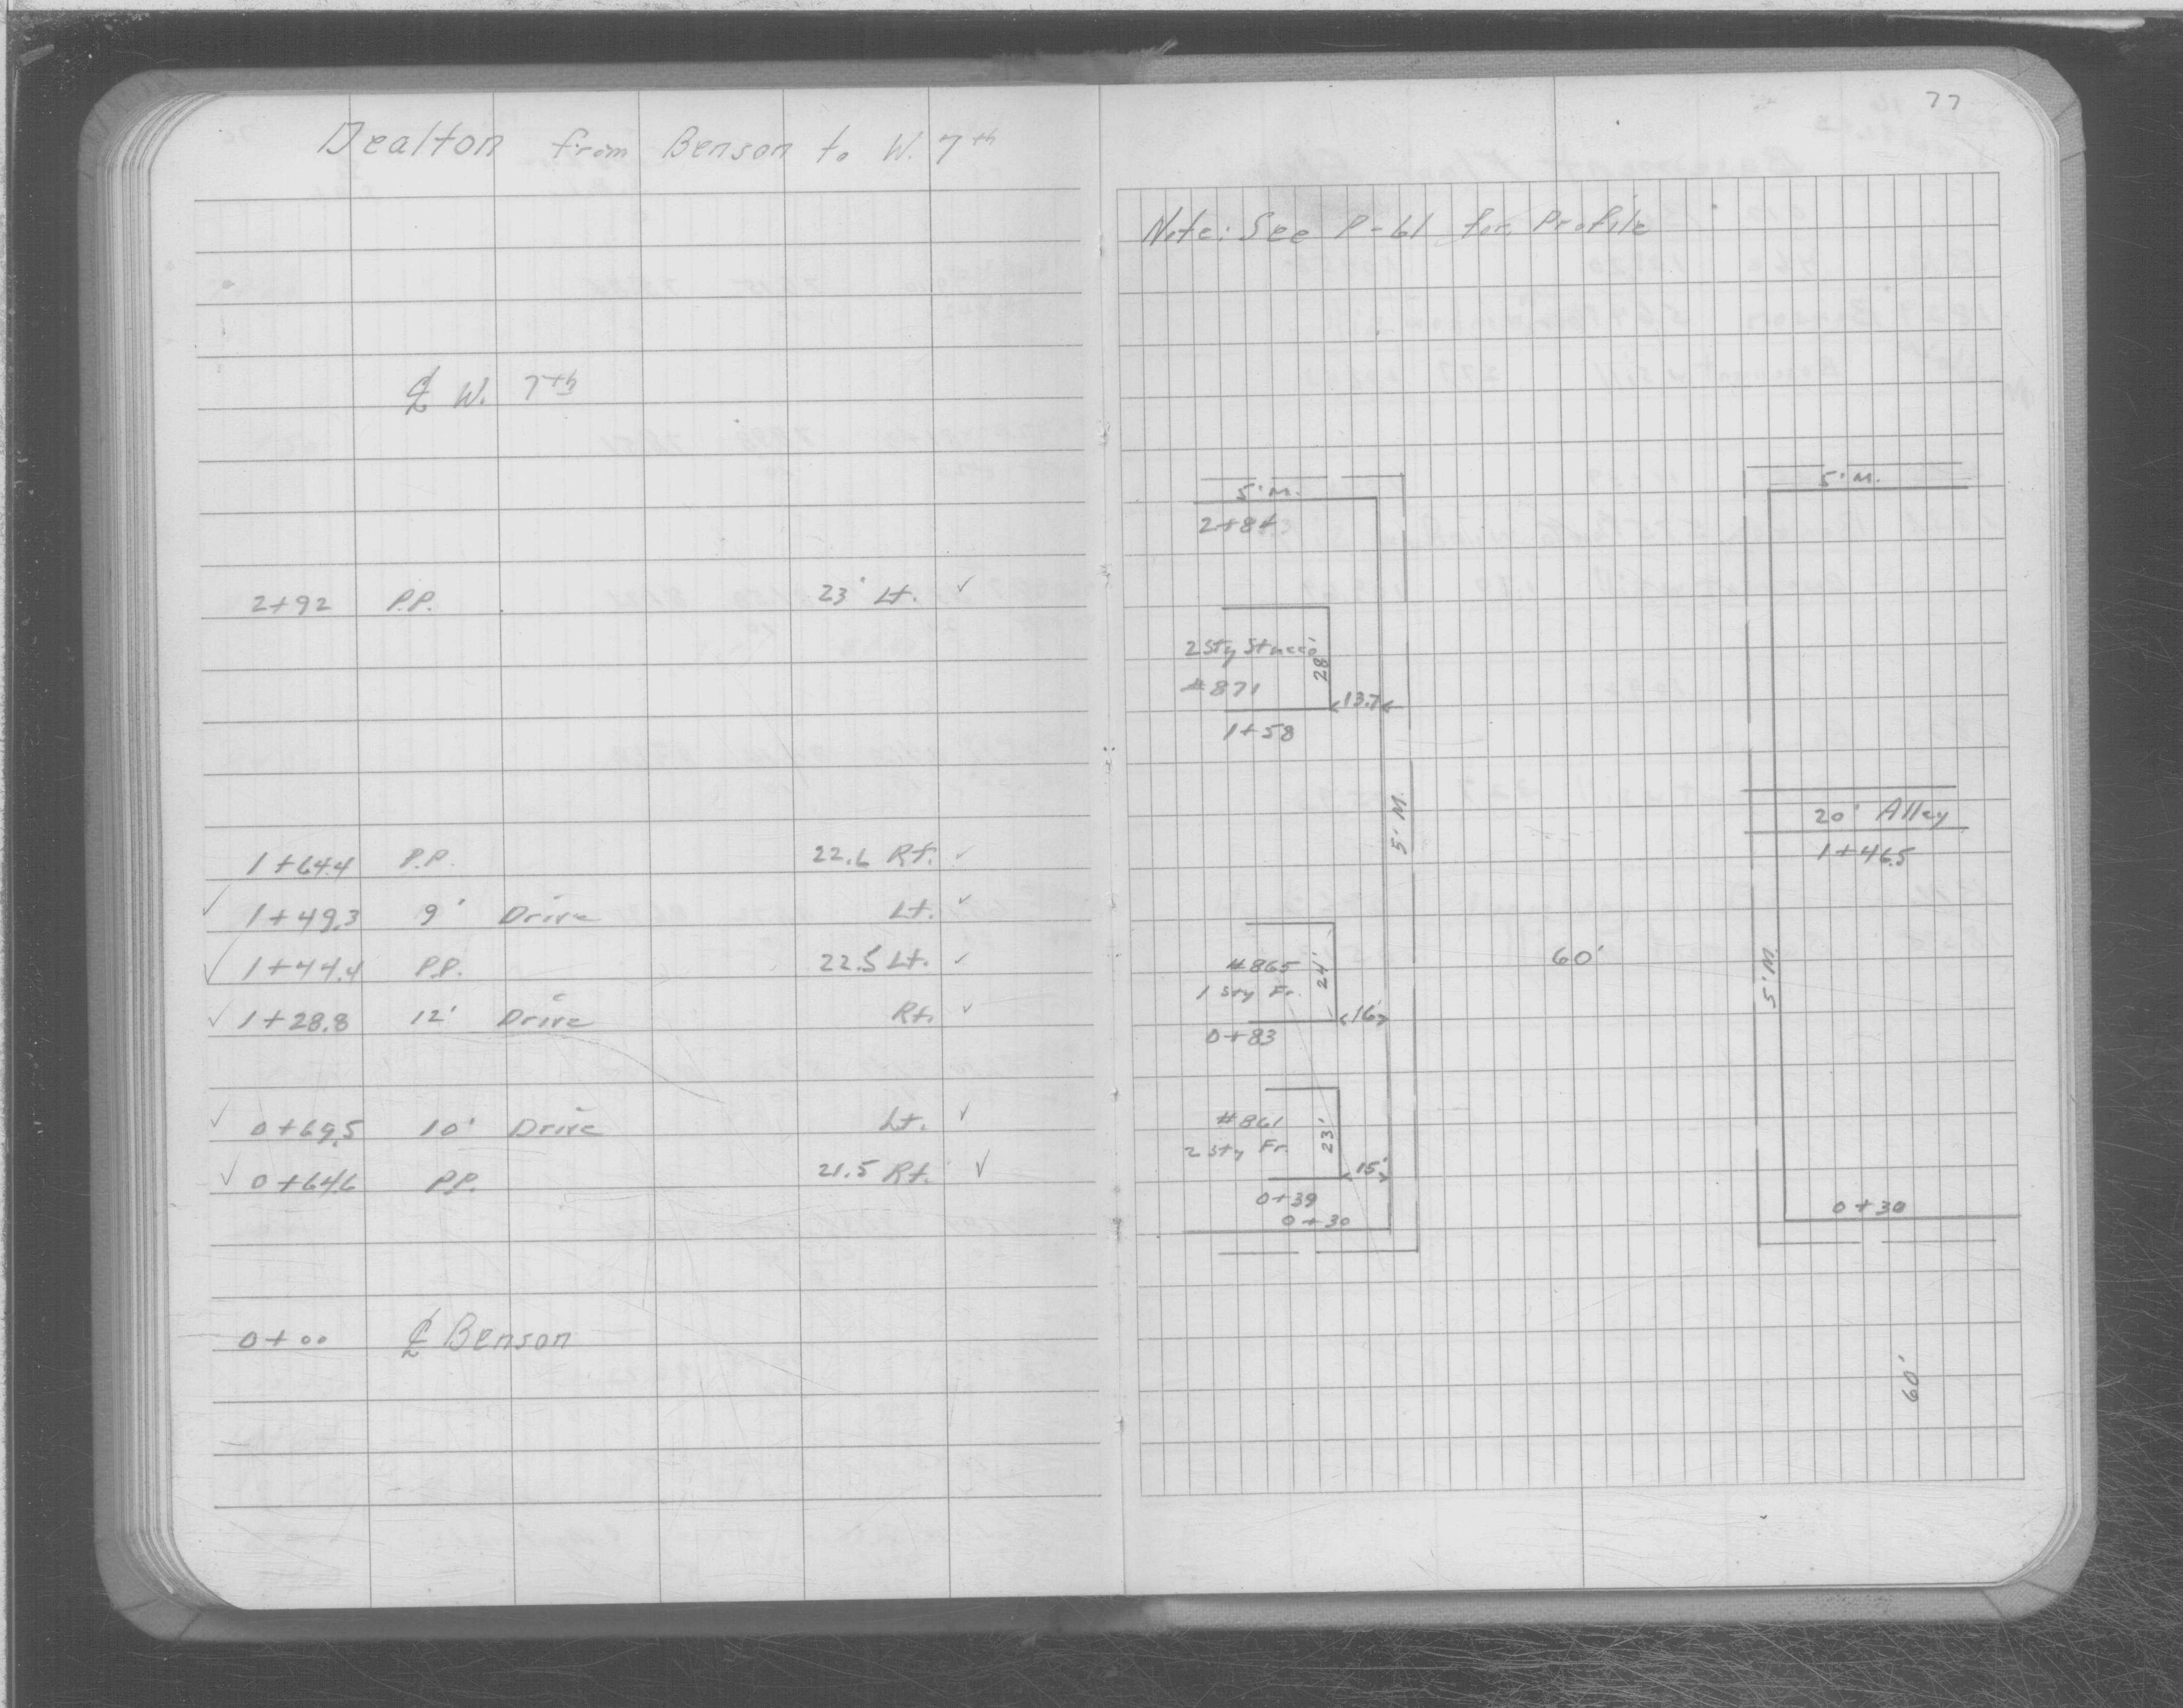 Dealton from Benson to W. 7th
℄ W. 7th
2+92 P.P. 23' Lt. ✓
1+64.4 P.P. 22.6 Rt. ✓
✓ 1+49.3 9' Drive Lt. ✓
✓ 1+44.4 P.P. 22.5 Lt. ✓
✓ 1+28.8 12' Drive Rt. ✓
✓ 0+69.5 10' Drive Lt. ✓
✓ 0+64.6 P.P. 21.5 Rt. ✓
0+00 ℄ Benson
77
Note: See P-61 for Profile
5' M.
2+84
2 Sty Stucco
#871
28'
13.7
1+58
5' M.
#865
1 Sty Fr.
24'
16'
0+83
#861
2 Sty Fr.
23'
15'
0+39
0+30
60'
5' M.
20' Alley
1+46.5
5' M.
0+30
60'